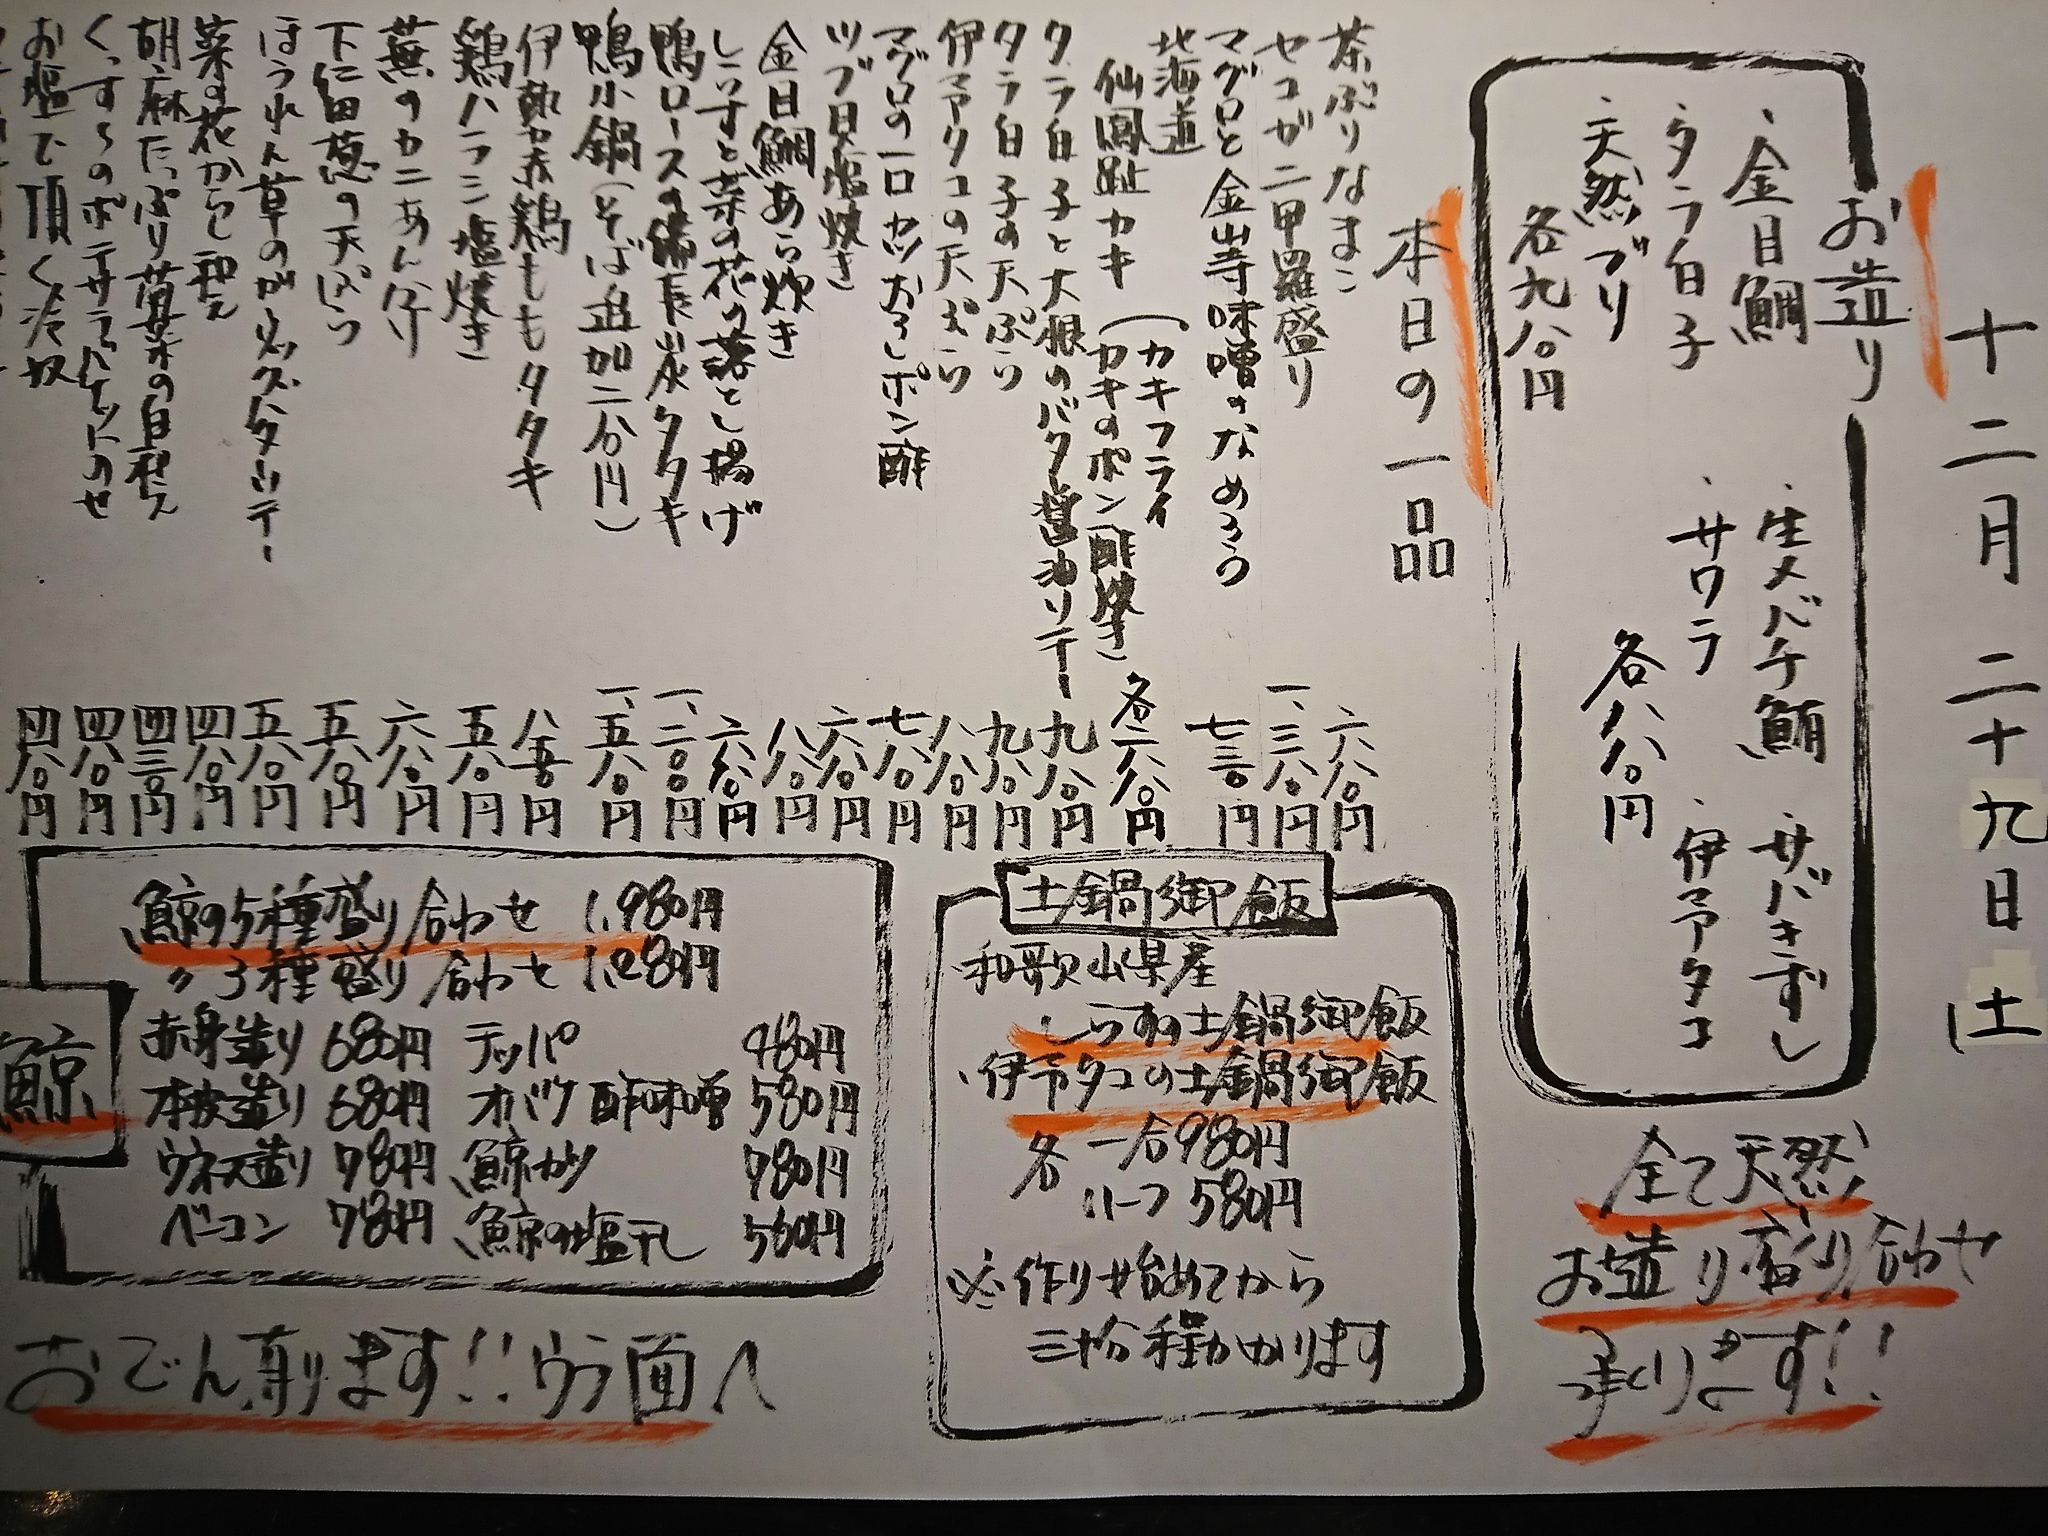 十二月二十九日(土)
お造り
・金目鯛
・生メバチ鮪
・サバきずし
・タラ白子
・サワラ
・伊予タコ
・天然ブリ
各八八〇円
各九八〇円
全て天然
お造り盛り合わせ
承ります!!
本日の一品
茶ぶりなまこ 六八〇円
セコガニ甲羅盛り 一、三八〇円
マグロと金山寺味噌のなめろう 七三〇円
北海道
仙鳳趾カキ(カキフライ
カキのポン酢焼き) 各二六〇円
タラ白子と大根のバタ醤油ソテー 九八〇円
タラ白子の天ぷら 九八〇円
伊予タコの天ぷら 八八〇円
マグロの一口カツおろしポン酢 七八〇円
ツブ貝塩焼き 六八〇円
金目鯛あら炊き 八八〇円
しらすと菜の花の落とし揚げ 六八〇円
鴨ロースの備長炭タタキ 一、二〇〇円
鴨小鍋(そば追加二八〇円) 一、五八〇円
伊勢赤鶏ももタタキ 八五〇円
鶏ハラミ塩焼き 五八〇円
蕪のカニあん掛け 六八〇円
下仁田葱の天ぷら 五八〇円
ほうれん草のガリックソテー 五八〇円
菜の花からし和え 四八〇円
胡麻たっぷり菊菜の白和え 四三〇円
くっすーのポテサラバケットのせ 四八〇円
お塩で頂く冷奴 四八〇円
土鍋御飯
和歌山県産
・しらすの土鍋御飯
・伊予タコの土鍋御飯
各 一合980円
ハーフ 580円
※作り始めてから
三十分程かかります
鯨
鯨の5種盛り合わせ 1,980円
〃3種盛り合わせ 1,280円
赤身造り 680円 テッパ 480円
本皮造り 680円 オバケ酢味噌 580円
ウネス造り 780円 鯨カツ 780円
ベーコン 780円 鯨の塩干し 560円
おでん有ります!!ウラ面へ